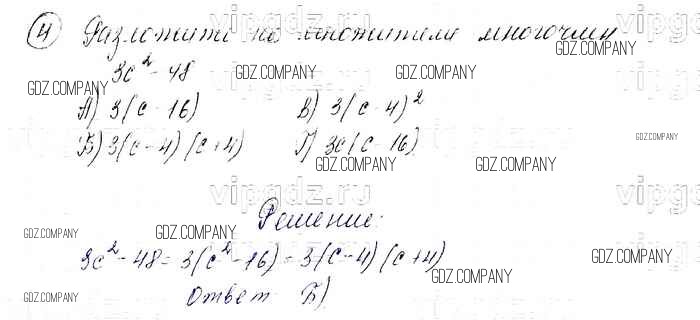 4 Разложите на множители многочлен
3c² - 48
А) 3(c - 16) В) 3(c - 4)²
Б) 3(c - 4)(c + 4) Г) 3c(c - 16)
Решение:
3c² - 48 = 3(c² - 16) = 3(c - 4)(c + 4)
Ответ: Б)
vipgdz.ru
GDZ.COMPANY